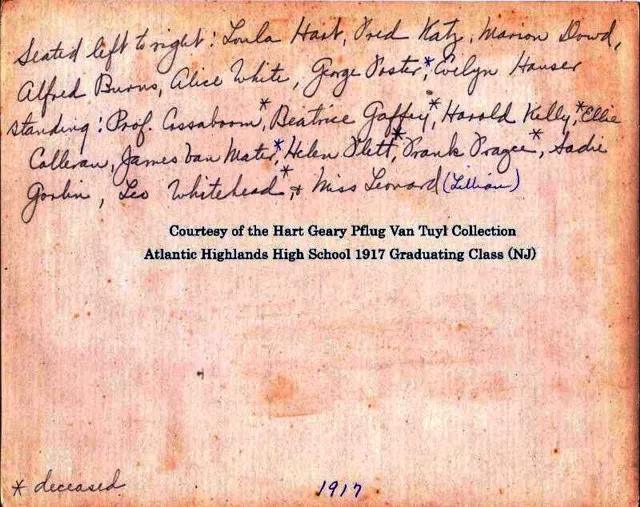 Seated left to right: Loula Hart, Fred Katz, Marion Dowd,
Alfred Burns, Alice White, George Foster,* Evelyn Hauser
standing: Prof. Cossaboom,* Beatrice Gaffey,* Harold Kelly,* Ellie
Colleran, James Van Mater,* Helen Flett,* Frank Frazee*, Sadie
Gorlin, Leo Whitehead*, & Miss Leonard (Lillian)
Courtesy of the Hart Geary Pflug Van Tuyl Collection
Atlantic Highlands High School 1917 Graduating Class (NJ)
* deceased
1917